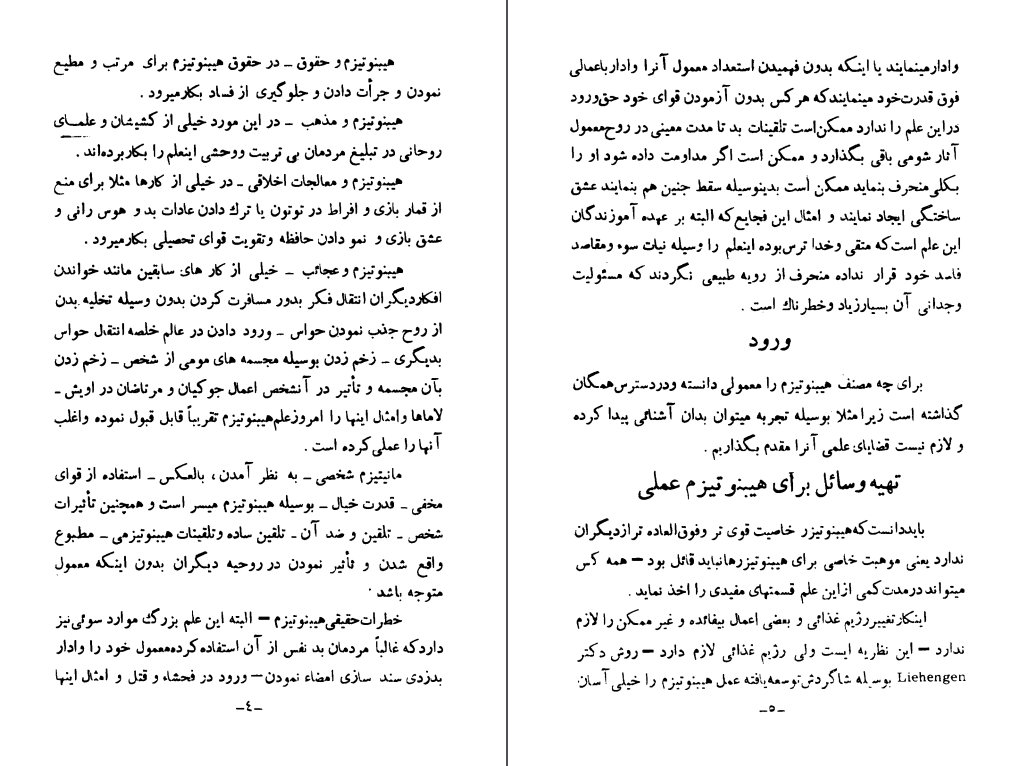 هیبنوتیزم و حقوق ــ در حقوق هیبنوتیزم برای مرتب و مطیع
نمودن و جرأت دادن و جلوگیری از فساد بکارمیرود .
هیبنوتیزم و مذهب ــ در این مورد خیلی از کشیشان و علمـای
روحانی در تبلیغ مردمان بی تربیت ووحشی اینعلم را بکاربرده‌اند .
هیبنوتیزم و معالجات اخلاقی ــ در خیلی از کارها مثلا برای منع
از قمار بازی و افراط در توتون یا ترك دادن عادات بد و هوس رانی و
عشق بازی و نمو دادن حافظه وتقویت قوای تحصیلی بکارمیرود .
هیبنوتیزم وعجائب ــ خیلی از کار های سابقین مانند خواندن
افکاردیگران انتقال فکر بدور مسافرت کردن بدون وسیله تخلیه بدن
از روح جذب نمودن حواس ــ ورود دادن در عالم خلصه انتقال حواس
بدیگری ــ زخم زدن بوسیله مجسمه های مومی از شخص ــ زخم زدن
بآن مجسمه و تأثیر در آنشخص اعمال جوکیان و مرتاضان در اویش ــ
لاماها وامثال اینها را امروزعلم‌هیبنوتیزم تقریباً قابل قبول نموده واغلب
آنها را عملی‌کرده است .
مانیتیزم شخصی ــ به نظر آمدن ، بالعکس ــ استفاده از قوای
مخفی ــ قدرت خیال ــ بوسیله هیبنوتیزم میسر است و همچنین تأثیرات
شخص ــ تلقین و ضد آن ــ تلقین ساده وتلقینات هیبنوتیزمی ــ مطبوع
واقع شدن و تأثیر نمودن در روحیه دیگران بدون اینکه معمول
متوجه باشد .
خطرات‌حقیقی‌هیبنوتیزم ــ البته این علم بزرگ موارد سوئی‌نیز
داردکه غالباً مردمان بد نفس از آن استفاده کرده‌معمول خود را وادار
بدزدی سند سازی امضاء نمودن ــ ورود در فحشاء و قتل و امثال اینها
ــ٤ــ
وادارمینمایند یا اینکه بدون فهمیدن استعداد معمول آنرا وادارباعمالی
فوق قدرت‌خود مینمایندکه هرکس بدون آزمودن قوای خود حق‌ورود
دراین علم را ندارد ممکن‌است تلقینات بد تا مدت معینی در روح‌معمول
آثار شومی باقی بگذارد و ممکن است اگر مداومت داده شود او را
بکلی‌منحرف بنماید ممکن أست بدینوسیله سقط جنین هم بنمایند عشق
ساختگی ایجاد نمایند و امثال این فجایع‌که البته بر عهده آموزندگان
این علم است‌که متقی وخدا ترس‌بوده اینعلم را وسیله نیات سوء ومقاصد
فاسد خود قرار نداده منحرف از رویه طبیعی نگردند که مسئولیت
وجدانی آن بسیارزیاد وخطرناك است .
ورود
برای چه مصنف هیبنوتیزم را معمولی دانسته ودردسترس‌همگان
گذاشته است زیرا مثلا بوسیله تجربه میتوان بدان آشنائی پیدا کرده
و لازم نیست قضایای علمی آنرا مقدم بگذاریم .
تهیه وسائل برای هیبنو تیزم عملی
بایددانست‌که‌هیبنوتیزر خاصیت قوی تر وفوق‌العاده ترازدیگران
ندارد یعنی موهبت خاصی برای هیبنوتیزرهانباید قائل بود ــ همه کس
میتواند درمدت‌کمی ازاین علم قسمتهای مفیدی را اخذ نماید .
اینکارتغییررژیم غذائی و بعضی اعمال بیفائده و غیر ممکن را لازم
ندارد ــ این نظریه ایست ولی رژیم غذائی لازم دارد ــ روش دکتر
Liehengen بوسیله شاگردش‌توسعه‌یافته عمل هیبنوتیزم را خیلی آسان
ــ٥ــ